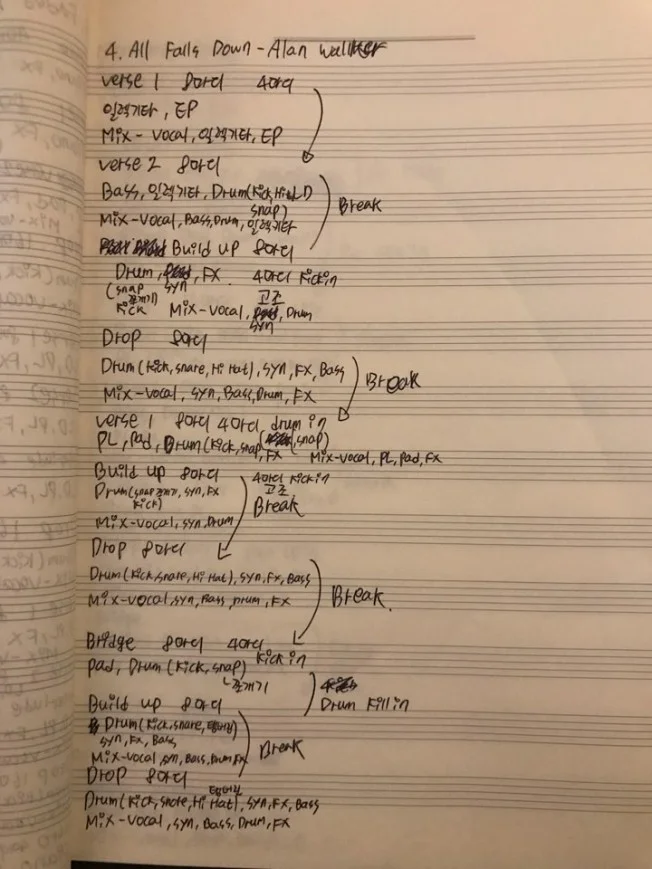 4. All Falls Down - Alan Walker
verse 1 8마디 4마디
일렉기타, EP
Mix - Vocal, 일렉기타, EP
verse 2 8마디
Bass, 일렉기타, Drum(Kick, Hihat,
snap)
Break
Mix-Vocal, Bass, Drum, 일렉기타
Build up 8마디
Drum, FX 4마디 Kick in
(snap syn 고조
쪼개기)
Kick Mix-Vocal, Drum
syn
Drop 8마디
Drum (Kick, snare, Hi Hat), syn, FX, Bass
Break
Mix-Vocal, syn, Bass, Drum, FX
verse 1 8마디 4마디 drum in
PL, pad, Drum (Kick, snap, FX snap)
Mix-Vocal, PL, pad, FX
Build up 8마디 4마디 Kick in
고조
Drum(snap 쪼개기, syn, FX
Kick)
Break
Mix-Vocal, syn, Drum
Drop 8마디
Drum (Kick, snare, Hi Hat), syn, FX, Bass
Mix-Vocal, syn, Bass, Drum, FX
Break.
Bridge 8마디 4마디
Kick in
pad, Drum (Kick, snap)
쪼개기
Drum Fill in
Build up 8마디
Drum (Kick, snare,
syn, FX, Bass
Break
Mix-Vocal, syn, Bass, Drum, FX
Drop 8마디
Drum (Kick, snare, Hi Hat), syn, FX, Bass
Mix-Vocal, syn, Bass, Drum, FX